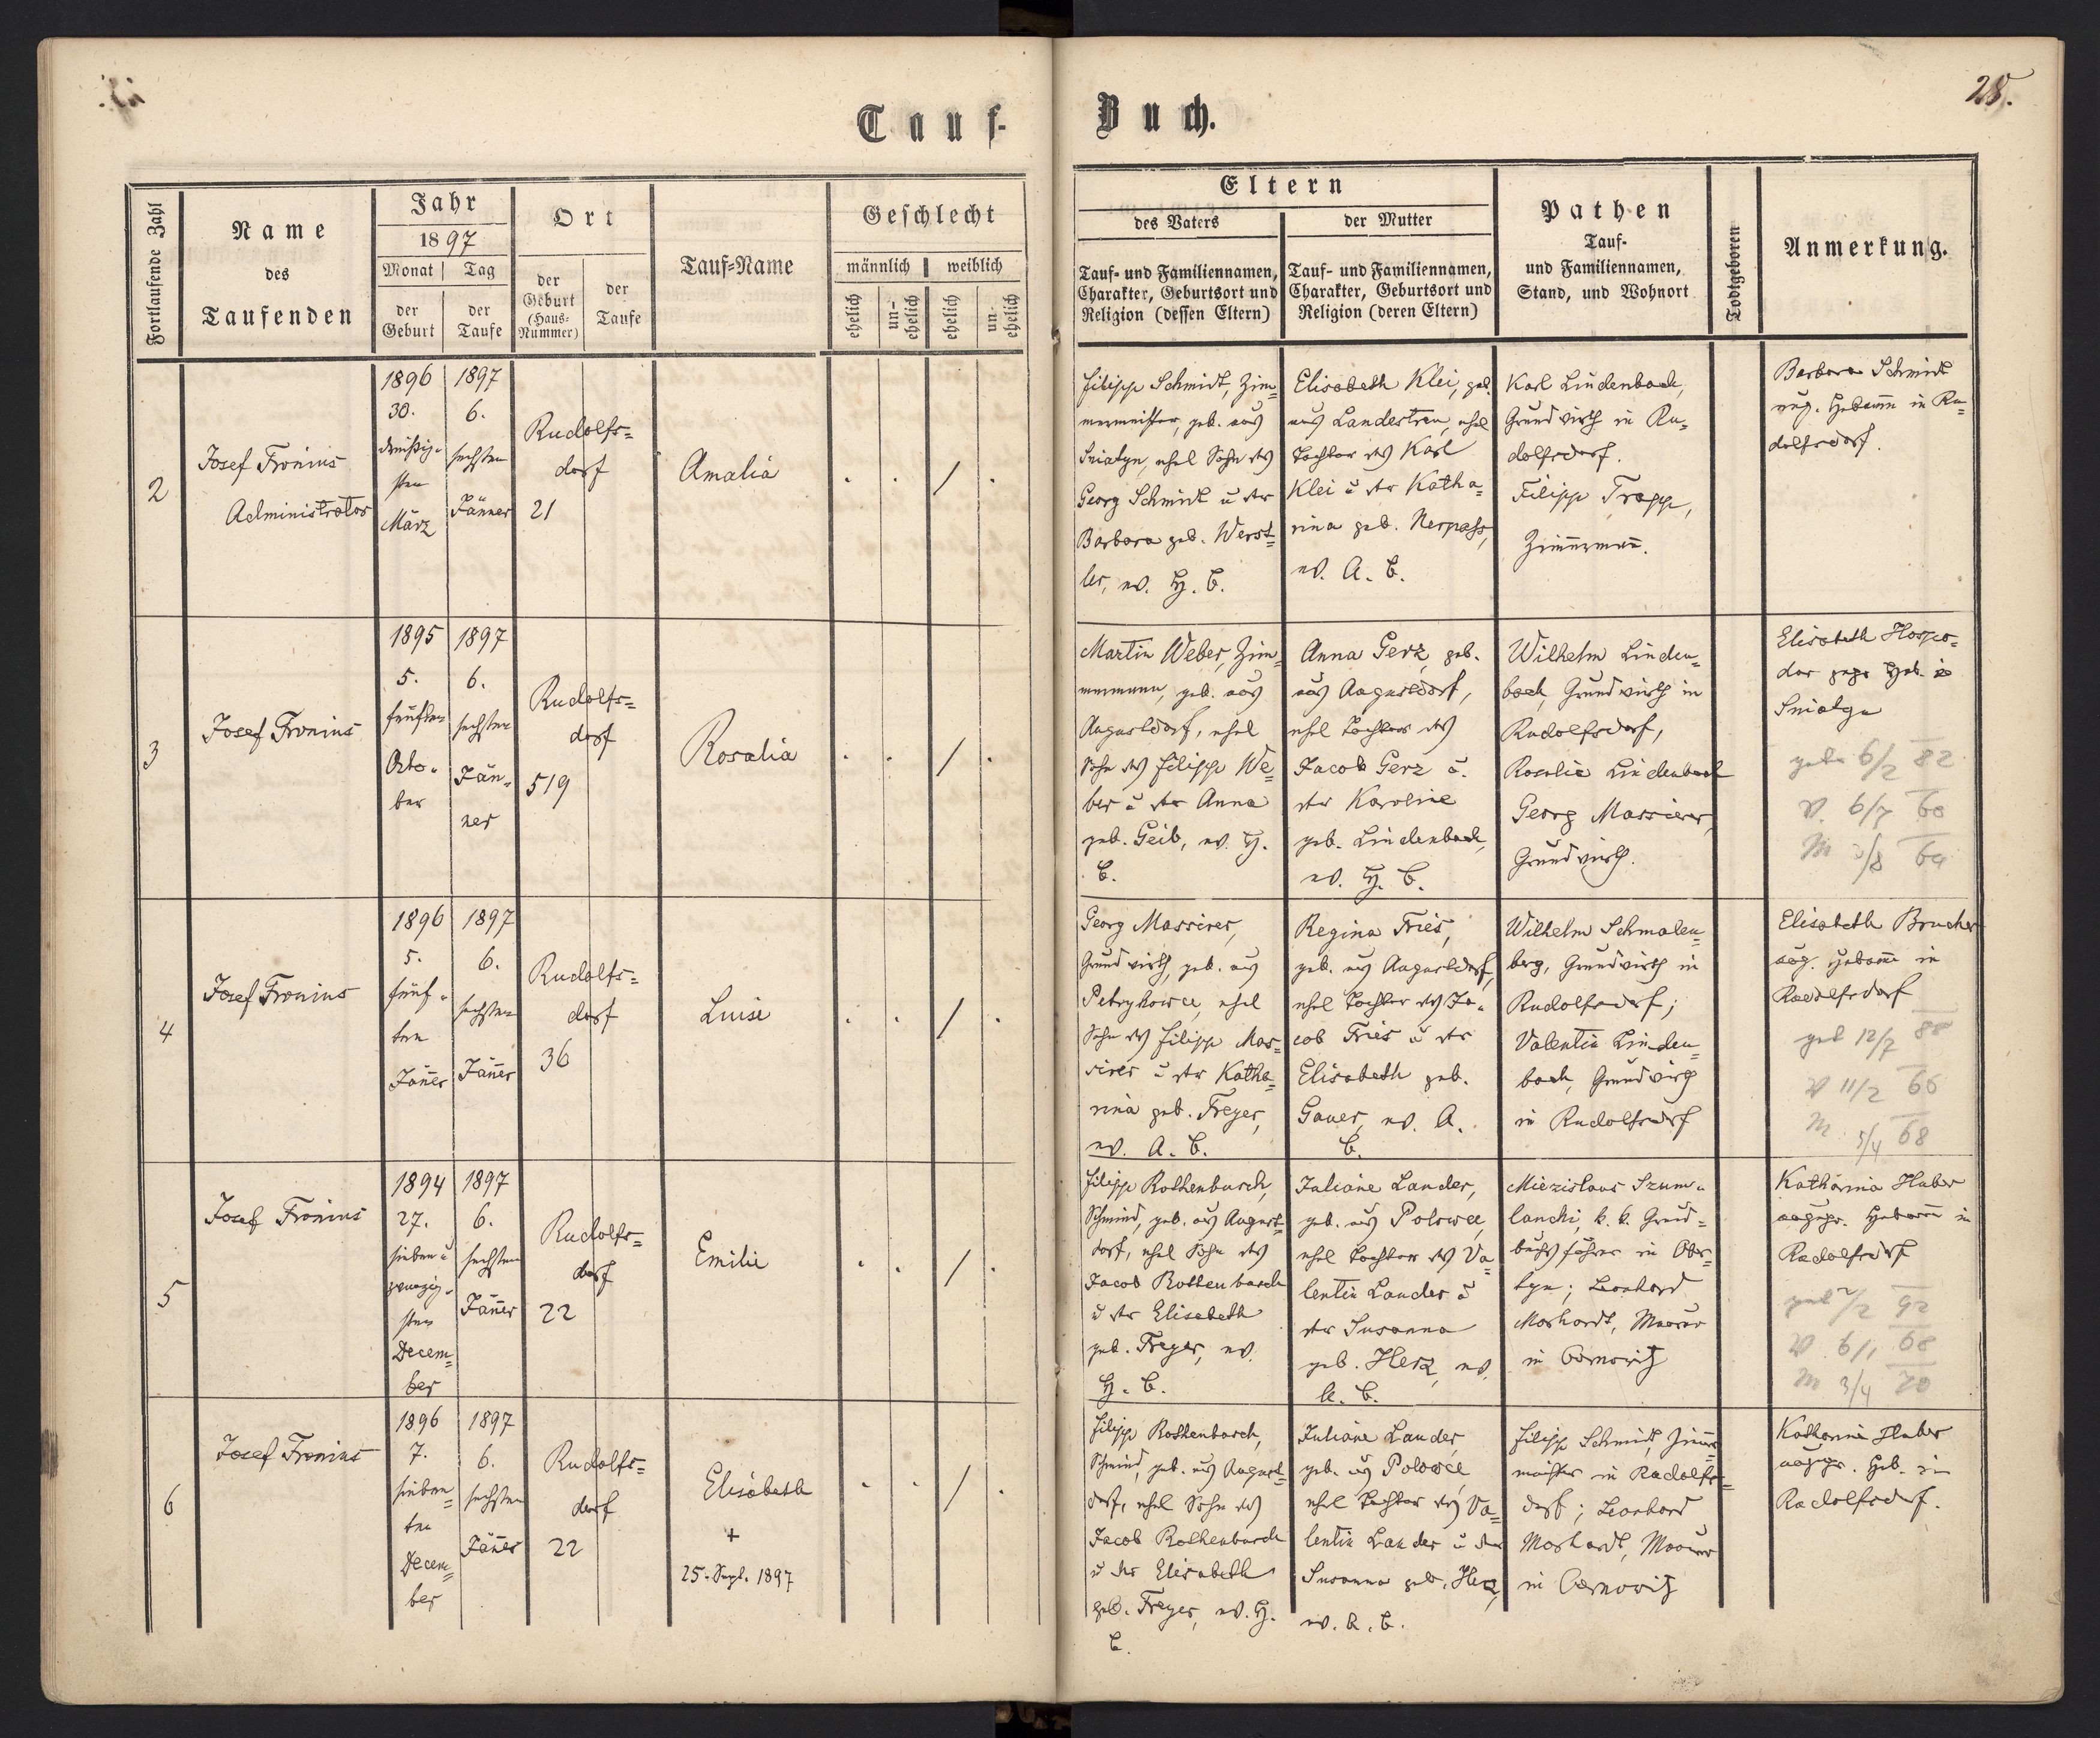 28.
Tauf-Buch.
Fortlaufende Zahl
Name
des
Taufenden
Jahr
1897
Monat
Tag
der
Geburt
der
Taufe
Ort
der
Geburt
(Haus-
Nummer)
der
Taufe
Tauf-Name
Geschlecht
männlich
weiblich
ehelich
un-
ehelich
ehelich
un-
ehelich
Eltern
des Vaters
der Mutter
Tauf- und Familiennamen,
Charakter, Geburtsort und
Religion (dessen Eltern)
Tauf- und Familiennamen,
Charakter, Geburtsort und
Religion (deren Eltern)
Pathen
Tauf-
und Familiennamen,
Stand, und Wohnort
Todtgeboren
Anmerkung.
2
Josef Fronius
Administrator
1896
30.
dreißig-
sten
März
1897
6.
sechsten
Jänner
Rudolfs=
dorf
21
Amalia
. . / .
Filipp Schmidt, Zim=
mermeister, geb. aus
Sniatyn, ehel Sohn des
Georg Schmidt u der
Barbara geb. Werst=
ler, ev. H. C.
Elisabeth Klei, geb.
aus Landestreu, ehel
Tochter des Karl
Klei u der Katha=
rina geb. Nerpass,
ev. A. C.
Karl Lindenbach,
Grundwirth in Ru=
dolfsdorf.
Filipp Trapp,
Zimmermañ.
Barbara Schmidt
ung. Hebamme in Ru=
dolfsdorf.
3
Josef Fronius
1895
5.
fünften
Octo-
ber
1897
6.
sechsten
Jän-
ner
Rudolfs=
dorf
519
Rosalia
. . / .
Martin Weber, Zim=
mermann, geb. aus
Augustdorf, ehel
Sohn des Filipp We=
ber u der Anna
geb. Geib, ev. H.
C.
Anna Gerz, geb.
aus Augustdorf,
ehel Tochter des
Jacob Gerz u.
der Karoline
geb. Lindenbach,
ev. H. C.
Wilhelm Linden=
bach, Grundwirth in
Rudolfsdorf,
Rosalie Lindenbach
Georg Massierer,
Grundwirth.
Elisabeth Hospo=
dar gepr Heb. in
Sniatyn
geb. 6/2 82
V. 6/7 60
M 3/8 64
4
Josef Fronius
1896
5.
fünf-
ten
Jäñer
1897
6.
sechsten
Jäñer
Rudolfs=
dorf
36
Luise
. . / .
Georg Massirer,
Grundwirth, geb. aus
Petrykowce, ehel
Sohn des Filipp Mas=
sirer u der Katha=
rina geb. Freyer,
ev. A. C.
Regina Fries,
geb. aus Augustdorf,
ehel Tochter des Ja-
cob Fries u der
Elisabeth geb.
Gauer, ev. A.
C.
Wilhelm Schmalen=
berg, Grundwirth in
Rudolfsdorf;
Valentin Linden=
bach, Grundwirth
in Rudolfsdorf
Elisabeth Brucher
ung. Hebame in
Rudolfsdorf
geb 12/7 88
V 11/2 66
M. 5/4 68
5
Josef Fronius
1894
27.
sieben u
zwanzig-
sten
Decem=
ber
1897
6.
sechsten
Jäñer
Rudolfs=
dorf
22
Emilie
. . / .
Filipp Rothenbusch,
Schmied, geb. aus August=
dorf, ehel Sohn des
Jacob Rothenbusch
u der Elisabeth
geb. Freyer, ev.
H. C.
Juliane Lander,
geb. aus Polowce,
ehel Tochter des Va=
lentin Lander u
der Susanna
geb. Herz, ev.
A. C.
Miezislaus Szum-
lanski, k. k. Grund=
buchsführer in Ober=
tyn; Leonhard
Morhardt, Maurer
in Czernowitz
Katharina Huber
ungepr. Hebame in
Rudolfsdorf
geb 2/2 92
V. 6/1 68
M 3/4 70
6
Josef Fronius
1896
7.
sieben=
ten
Decem=
ber
1897
6.
sechsten
Jäñer
Rudolfs=
dorf
22
Elisabeth
+
25. Sept. 1897
. . / .
Filipp Rothenbusch,
Schmied, geb. aus August=
dorf, ehel Sohn des
Jacob Rothenbusch
u der Elisabeth
geb. Freyer, ev. H.
C.
Juliane Lander,
geb. aus Polowce
ehel Tochter des Va=
lentin Lander u der
Susanna geb. Herz,
ev. A. C.
Filipp Schmidt, Zimer=
meister in Rudolfs=
dorf; Leonhard
Morhardt, Maurer
in Czernowitz
Katharina Huber
ungepr. Heb. in
Rudolfsdorf.